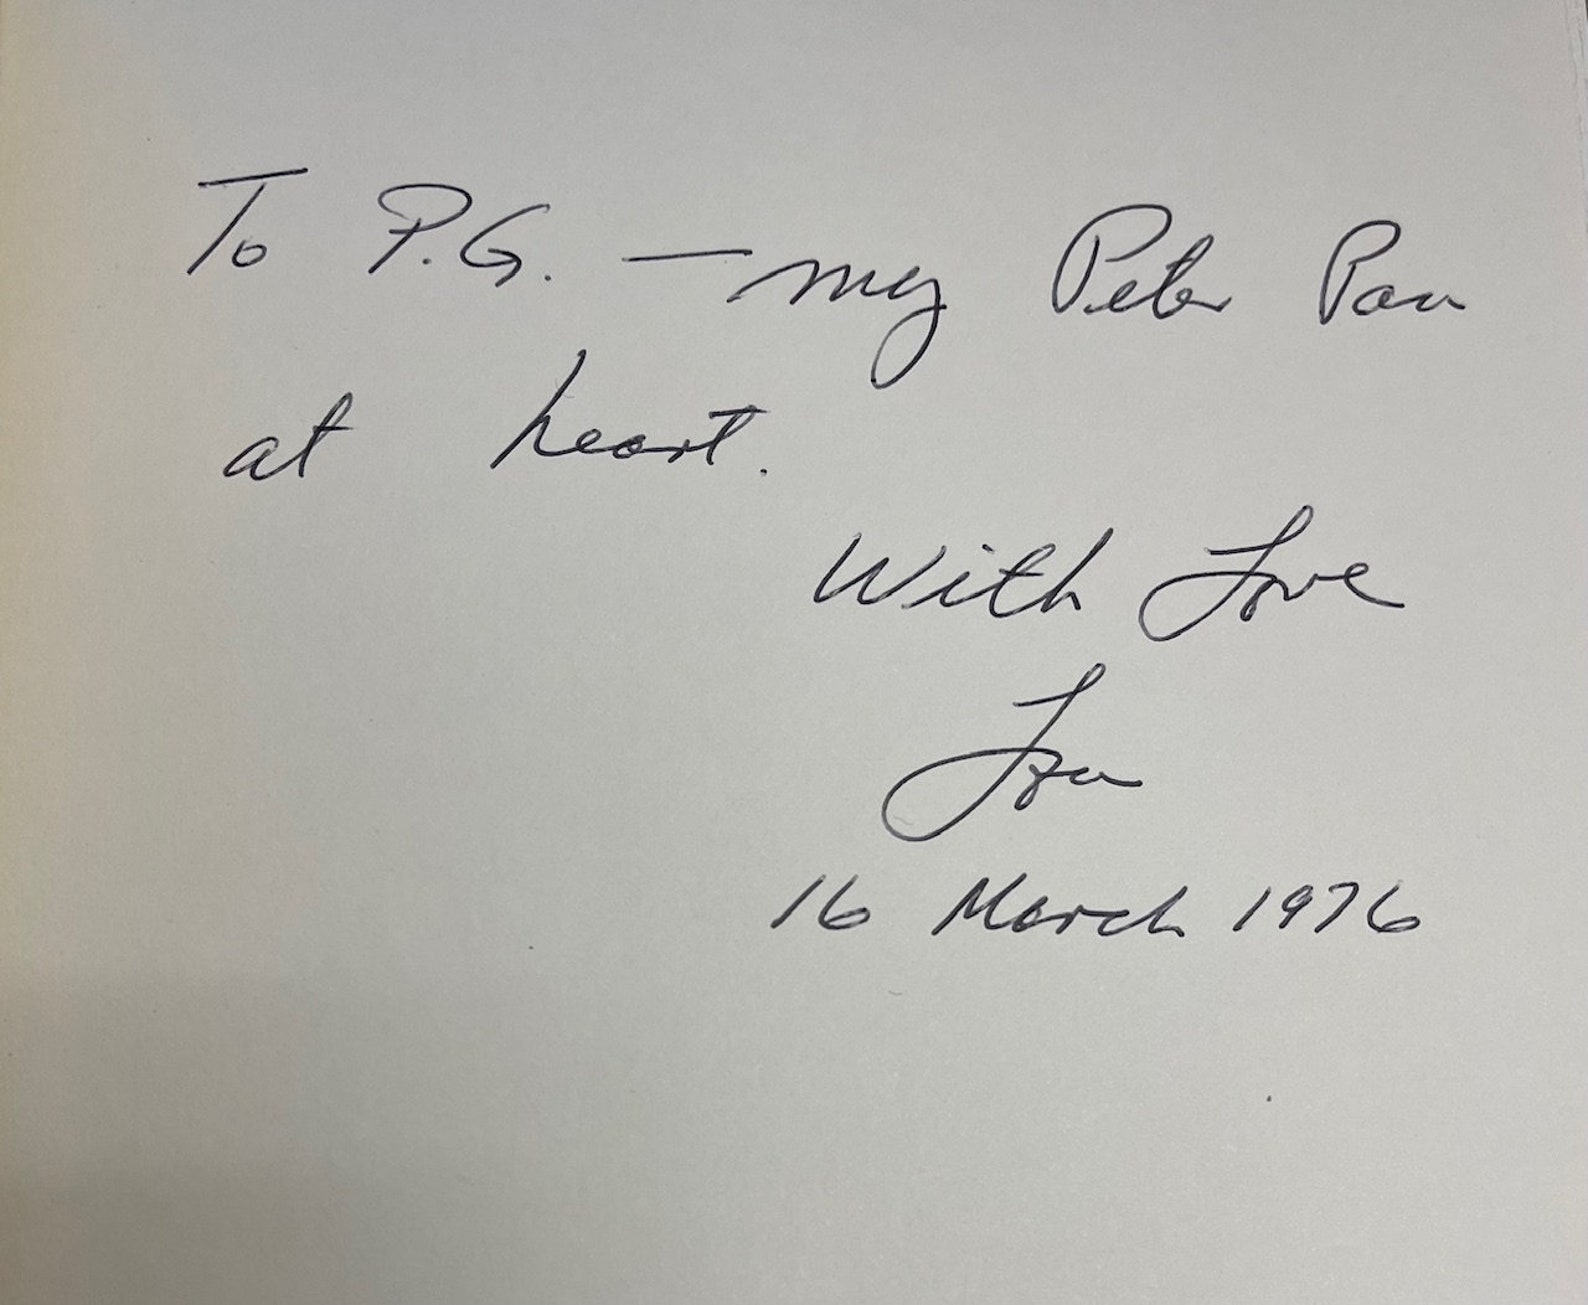 To P.G. — my Peter Pan
at heart.
With Love
Lou
16 March 1976